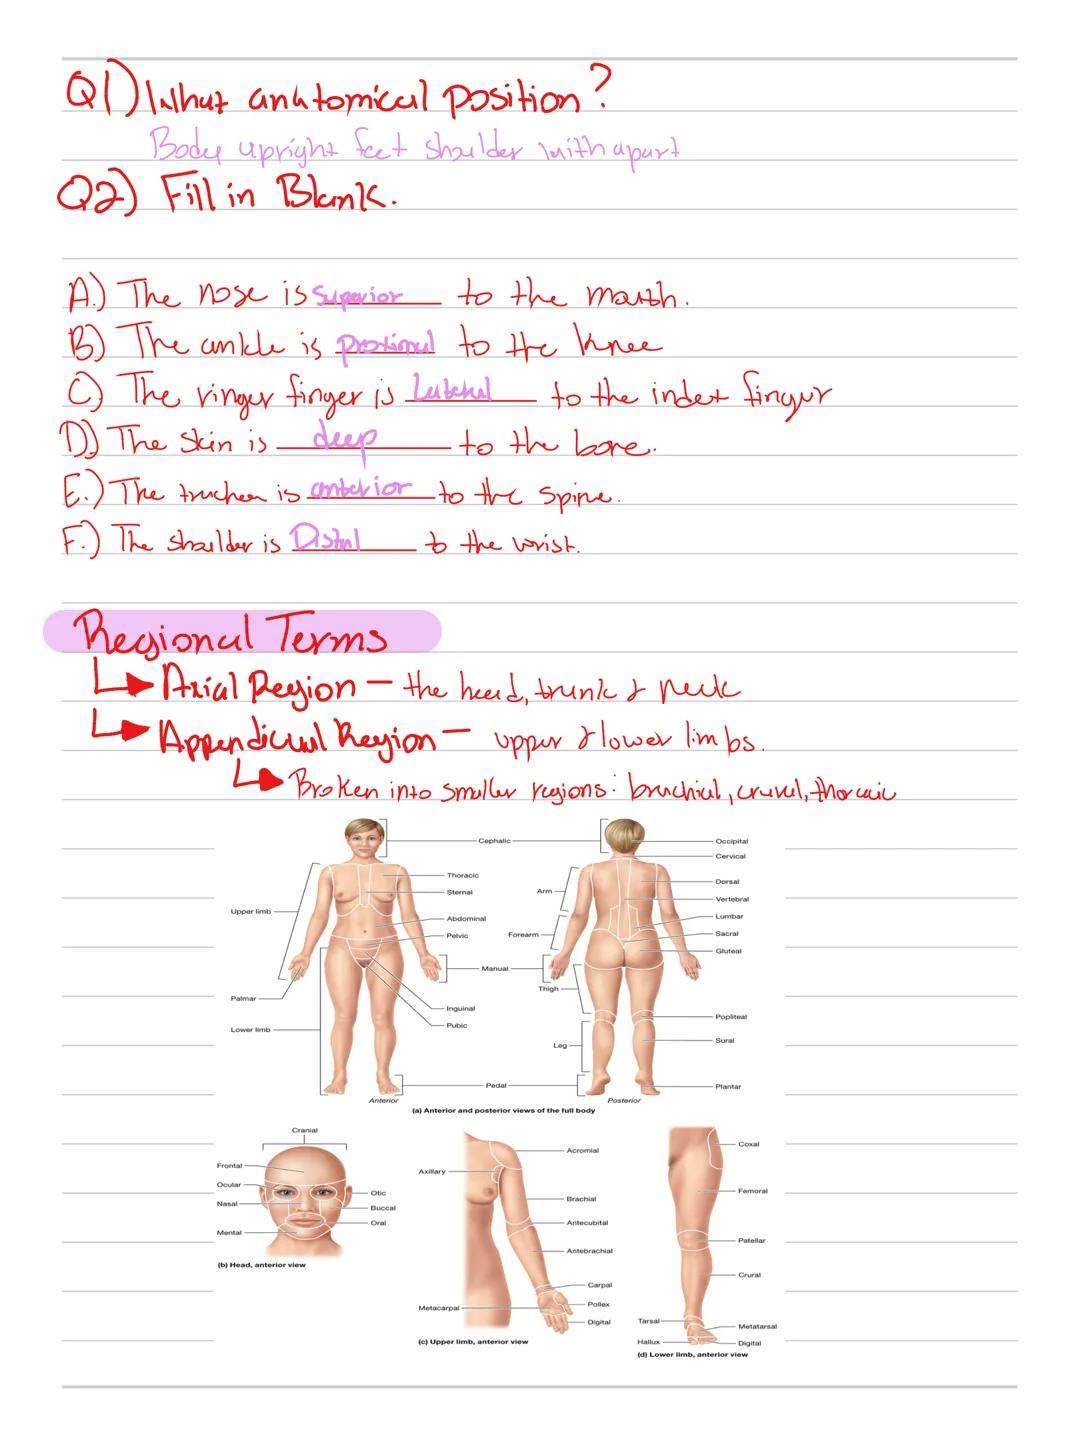 Q1) What anatomical position?
Body upright feet shoulder with apart
Q2) Fill in Blank.
A.) The nose is superior to the mouth.
B) The ankle is proximal to the knee
C) The ringer finger is Lateral to the index finger
D) The skin is deep to the bone.
E.) The trachea is anterior to the spine.
F.) The shoulder is Distal to the wrist.
Regional Terms
Axial Region – the head, trunk & neck
Appendicual Region – upper & lower limbs.
Broken into smaller regions: brachial, crural, thoracic
Cephalic
Occipital
Cervical
Thoracic
Sternal
Arm
Dorsal
Vertebral
Upper limb
Abdominal
Pelvic
Forearm
Lumbar
Sacral
Gluteal
Manual
Thigh
Palmar
Inguinal
Pubic
Lower limb
Popliteal
Leg
Sural
Pedal
Plantar
Anterior
Posterior
(a) Anterior and posterior views of the full body
Cranial
Frontal
Ocular
Nasal
Mental
Otic
Buccal
Oral
(b) Head, anterior view
Acromial
Axillary
Brachial
Antecubital
Antebrachial
Carpal
Pollex
Metacarpal
Digital
(c) Upper limb, anterior view
Coxal
Femoral
Patellar
Crural
Tarsal
Metatarsal
Hallux
Digital
(d) Lower limb, anterior view